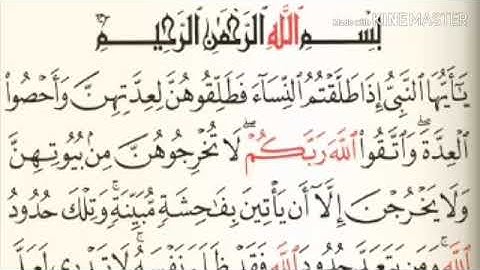 Made with KINEMASTER
بِسْمِ ٱللَّهِ ٱلرَّحْمَٰنِ ٱلرَّحِيمِ
يَٰٓأَيُّهَا ٱلنَّبِيُّ إِذَا طَلَّقْتُمُ ٱلنِّسَآءَ فَطَلِّقُوهُنَّ لِعِدَّتِهِنَّ وَأَحْصُوا۟
ٱلْعِدَّةَ ۖ وَٱتَّقُوا۟ ٱللَّهَ رَبَّكُمْ ۖ لَا تُخْرِجُوهُنَّ مِنۢ بُيُوتِهِنَّ
وَلَا يَخْرُجْنَ إِلَّآ أَن يَأْتِينَ بِفَٰحِشَةٍ مُّبَيِّنَةٍ ۚ وَتِلْكَ حُدُودُ
ٱللَّهِ ۚ وَمَن يَتَعَدَّ حُدُودَ ٱللَّهِ فَقَدْ ظَلَمَ نَفْسَهُۥ ۚ لَا تَدْرِى لَعَلَّ